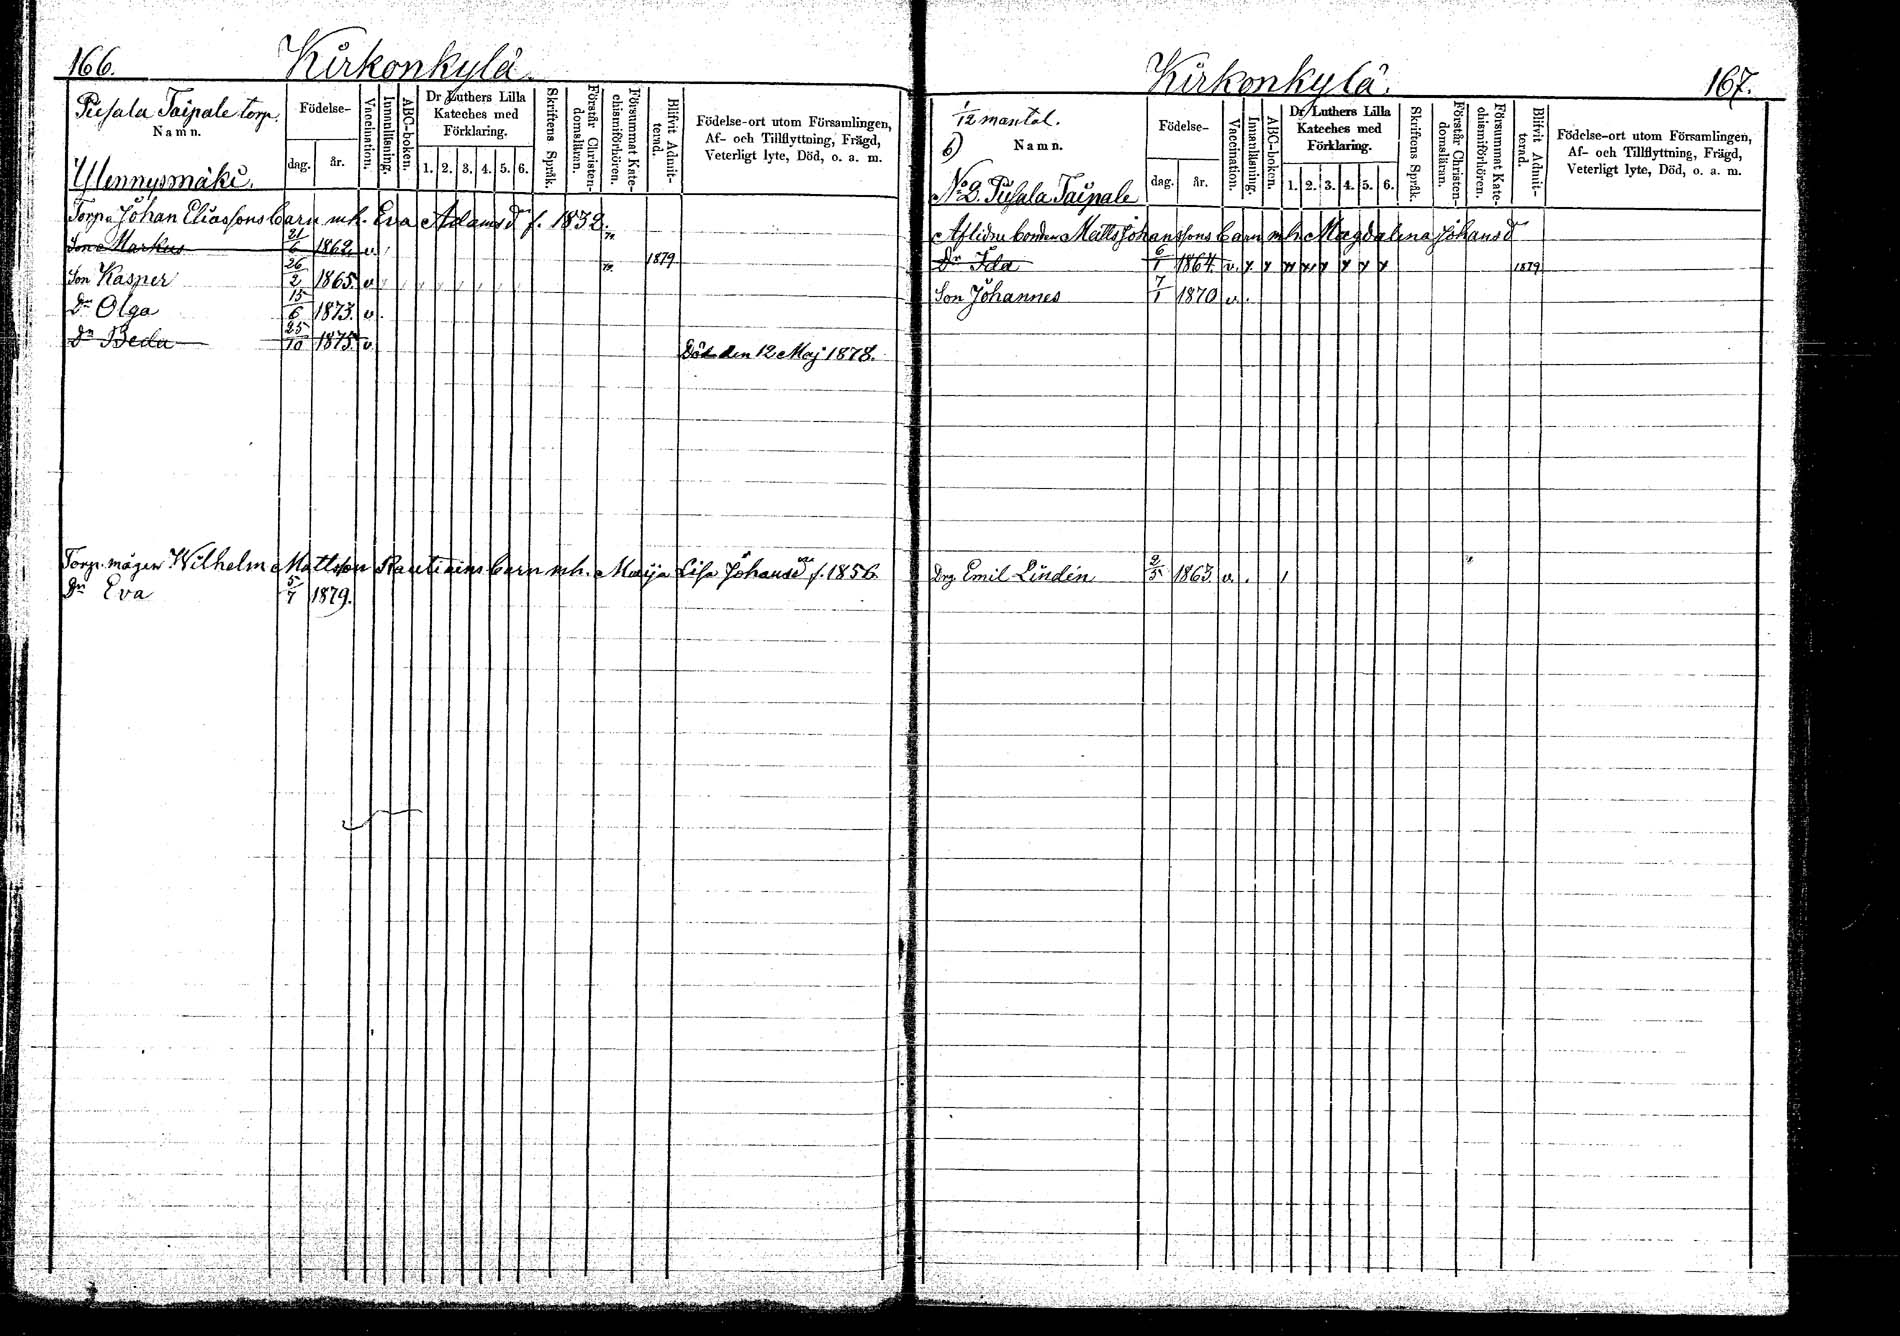 166.
Kirkonkylä.
Pusala Taipale torp.
Namn.
Ylennysmäki.
Födelse-
dag. år.
Vaccination.
Innanläsning.
ABC-boken.
Dr Luthers Lilla Kateches med Förklaring.
1. 2. 3. 4. 5. 6.
Skriftens Språk.
Förstår Christendomsläran.
Försummat Katechismiförhören.
Blifvit Admitterad.
Födelse-ort utom Församlingen,
Af- och Tillflyttning, Frägd,
Veterligt lyte, Död, o. a. m.
Torp. Johan Eliassons barn mh. Eva Adamsdr f. 1832.
Son Markus 21/6 1862 v. 1879
Son Kasper 26/2 1865. v
Dr Olga 15/6 1873. v.
Dr Beda 25/10 1875. v. Död den 12 Maj 1878.
Torp. mågen Wilhelm Mattsson Rautiains barn mh. Maija Lisa Johansdr f. 1856.
Dr Eva 5/7 1879.
Kirkonkylä.
167.
1/12 mantal.
b)
Namn.
No 2. Pusala Taipale
Födelse-
dag. år.
Vaccination.
Innanläsning.
ABC-boken.
Dr Luthers Lilla Kateches med Förklaring.
1. 2. 3. 4. 5. 6.
Skriftens Språk.
Förstår Christendomsläran.
Försummat Katechismiförhören.
Blifvit Admitterad.
Födelse-ort utom Församlingen,
Af- och Tillflyttning, Frägd,
Veterligt lyte, Död, o. a. m.
Aflidne bonden Matts Johanssons barn mh Magdalena Johansd
Dr Ida 6/1 1864. v. x x x x x x x x 1879
Son Johannes 7/1 1870 v.
Drg. Emil Lindén 2/5 1863. v.